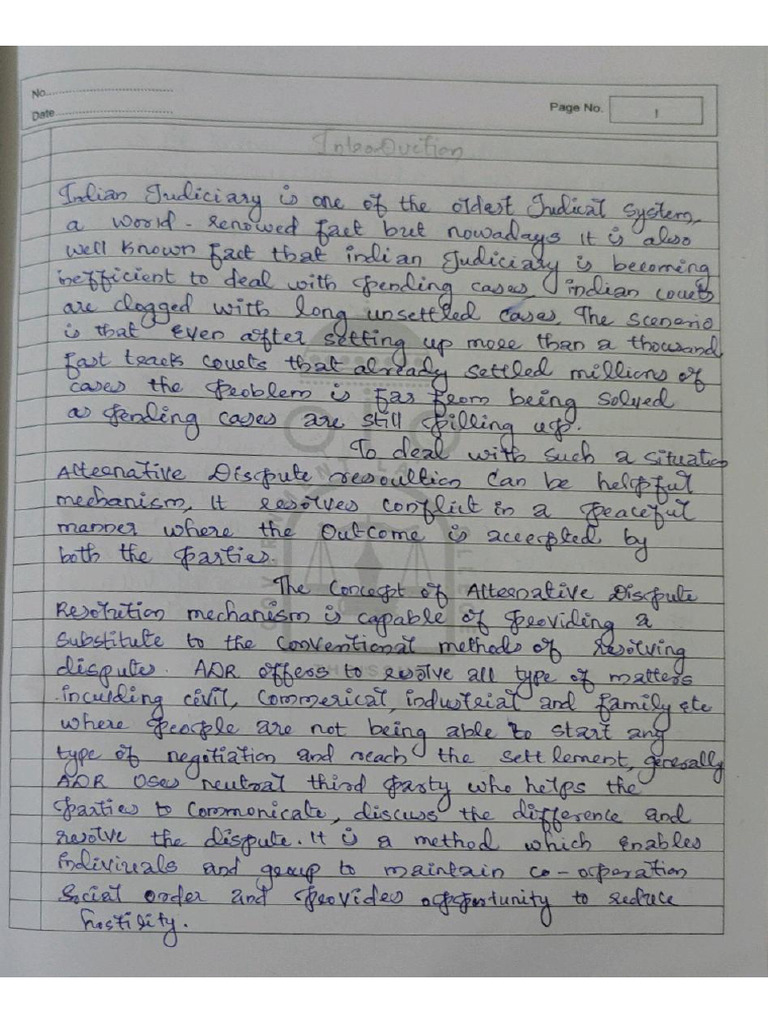 No.
Date
Page No. 1
Introduction
Indian Judiciary is one of the oldest Judical System,
a world-renowed fact but nowadays it is also
well known fact that indian Judiciary is becoming
inefficient to deal with pending cases, indian courts
are clogged with long unsettled cases. The scenerio
is that even after setting up more than a thousand
fast track courts that already settled millions of
cases the problem is far from being solved
as pending cases are still pilling up.
To deal with such a situation
Alternative Dispute resoultion can be helpful
mechanism, it resolves conflict in a peaceful
manner where the outcome is accepted by
both the parties.
The concept of Alternative Dispute
Resolution mechanism is capable of providing a
substitute to the conventional methods of resolving
dispute. ADR offers to resolve all type of matters
inculding civil, commerical, industrial and family etc
where people are not being able to start any
type of negotiation and reach the settlement, generally
ADR uses neutral third party who helps the
parties to communicate, discuss the difference and
resolve the dispute. It is a method which enables
indiviuals and group to maintain co-operation
social order and provides opportunity to reduce
hostility.